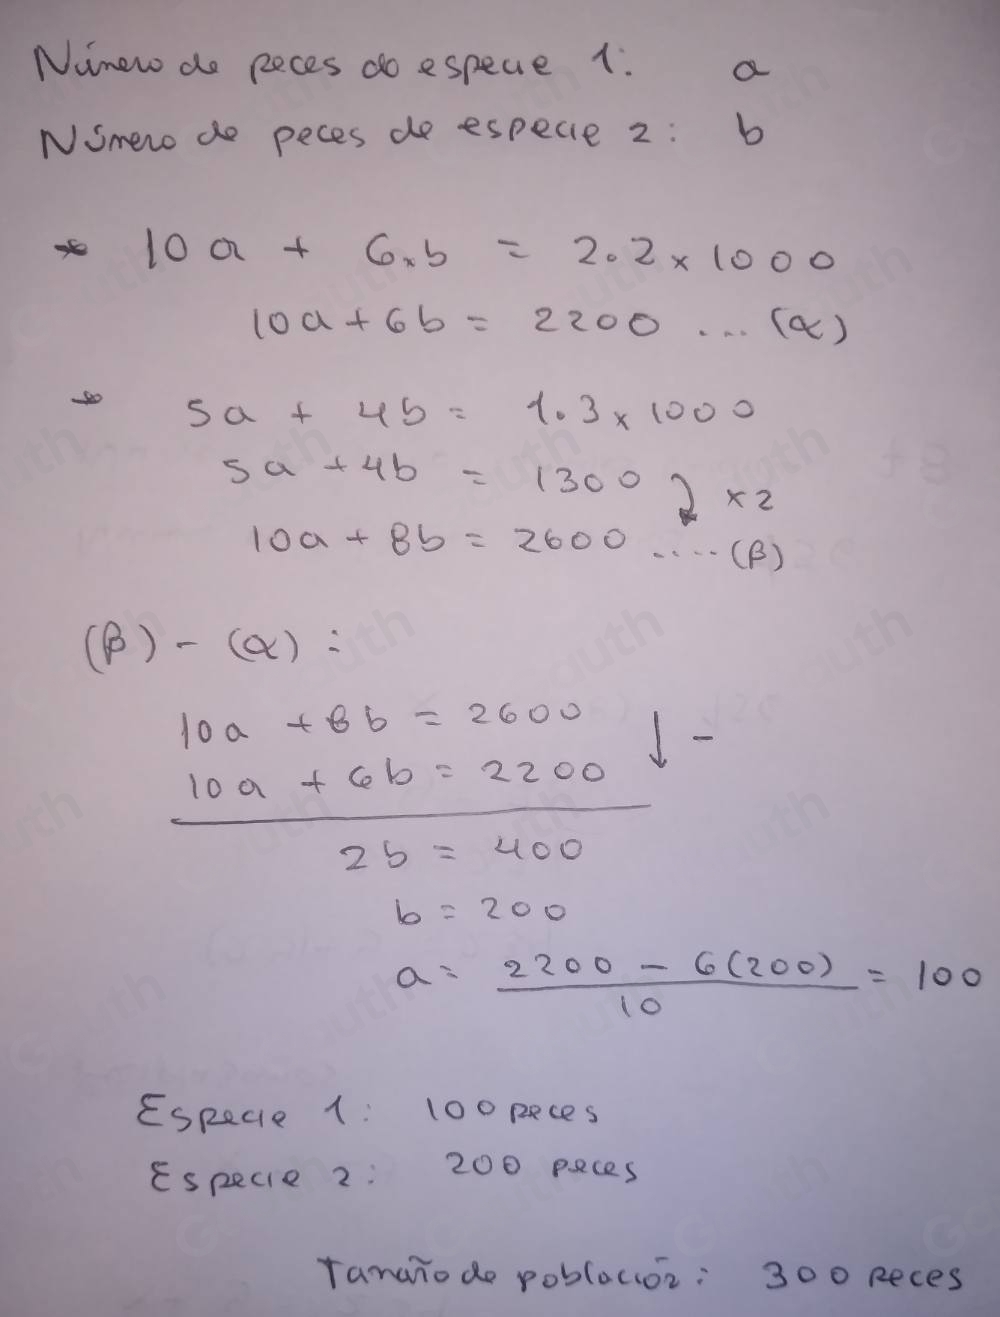 Número de peces do especie 1: a
Número de peces de especie 2: b
* 10a + 6×b = 2.2 × 1000
10a + 6b = 2200 ... (α)
* 5a + 4b = 1.3 × 1000
5a + 4b = 1300
× 2
10a + 8b = 2600 .... (β)
(β) - (α) :
10a + 8b = 2600
10a + 6b = 2200
↓ -
2b = 400
b = 200
a = \frac{2200 - 6(200)}{10} = 100
Especie 1: 100 peces
Especie 2: 200 peces
Tamaño de población: 300 peces